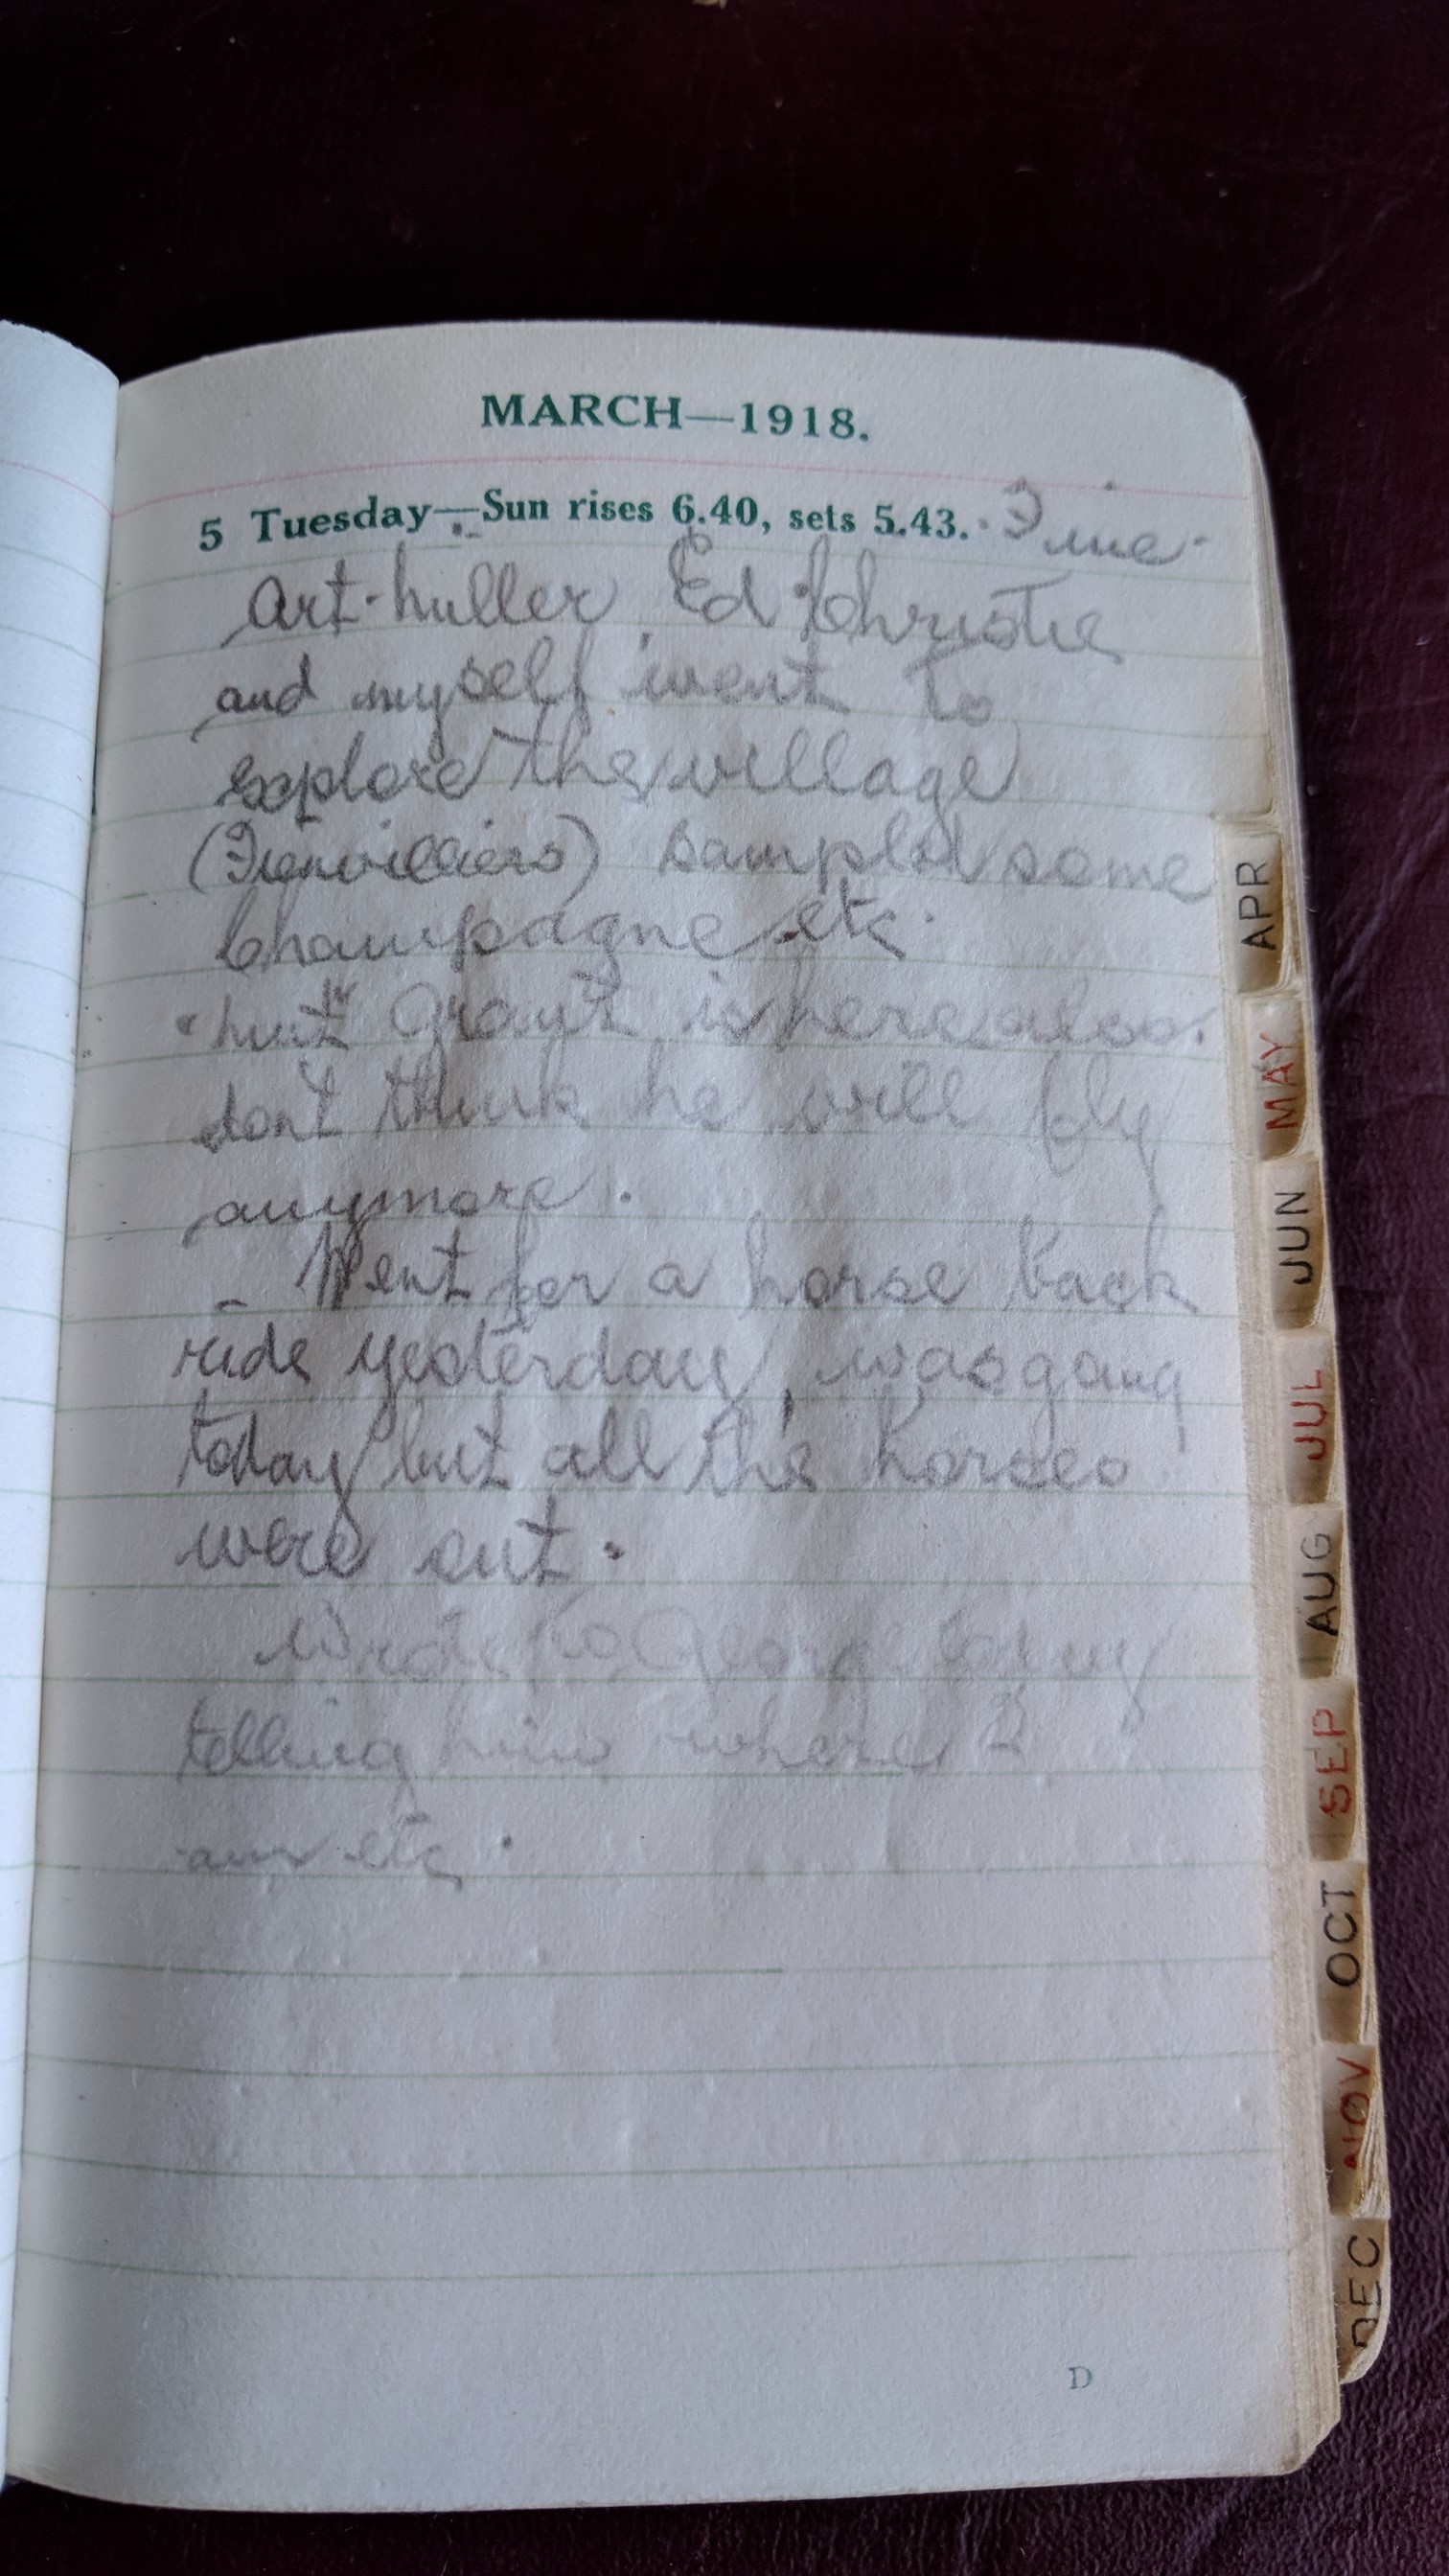 MARCH—1918.
5 Tuesday—Sun rises 6.40, sets 5.43. Fine.
Art. huller Ed. Christie
and myself went to
explore the village
(Fienvilliers) sampled some
Champagne etc.
Grant is here also.
dont think he will fly
anymore.
- Went for a horse back
ride yesterday, was going
today but all the horses
were out.
Wrote to
telling him where I
am etc.
D
APR
MAY
JUN
JUL
AUG
SEP
OCT
NOV
DEC